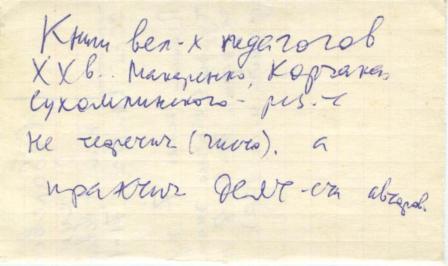 Книги вел-х педагогов
XX в. Макаренко, Корчака,
Сухомлинского - рез-т
не теоретич (чисто), а
практич деят-сти авторов.